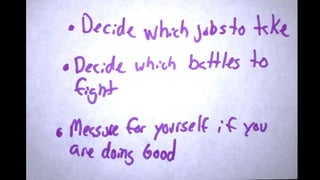 • Decide which jobs to take
• Decide which battles to
fight
• Measure for yourself if you
are doing Good